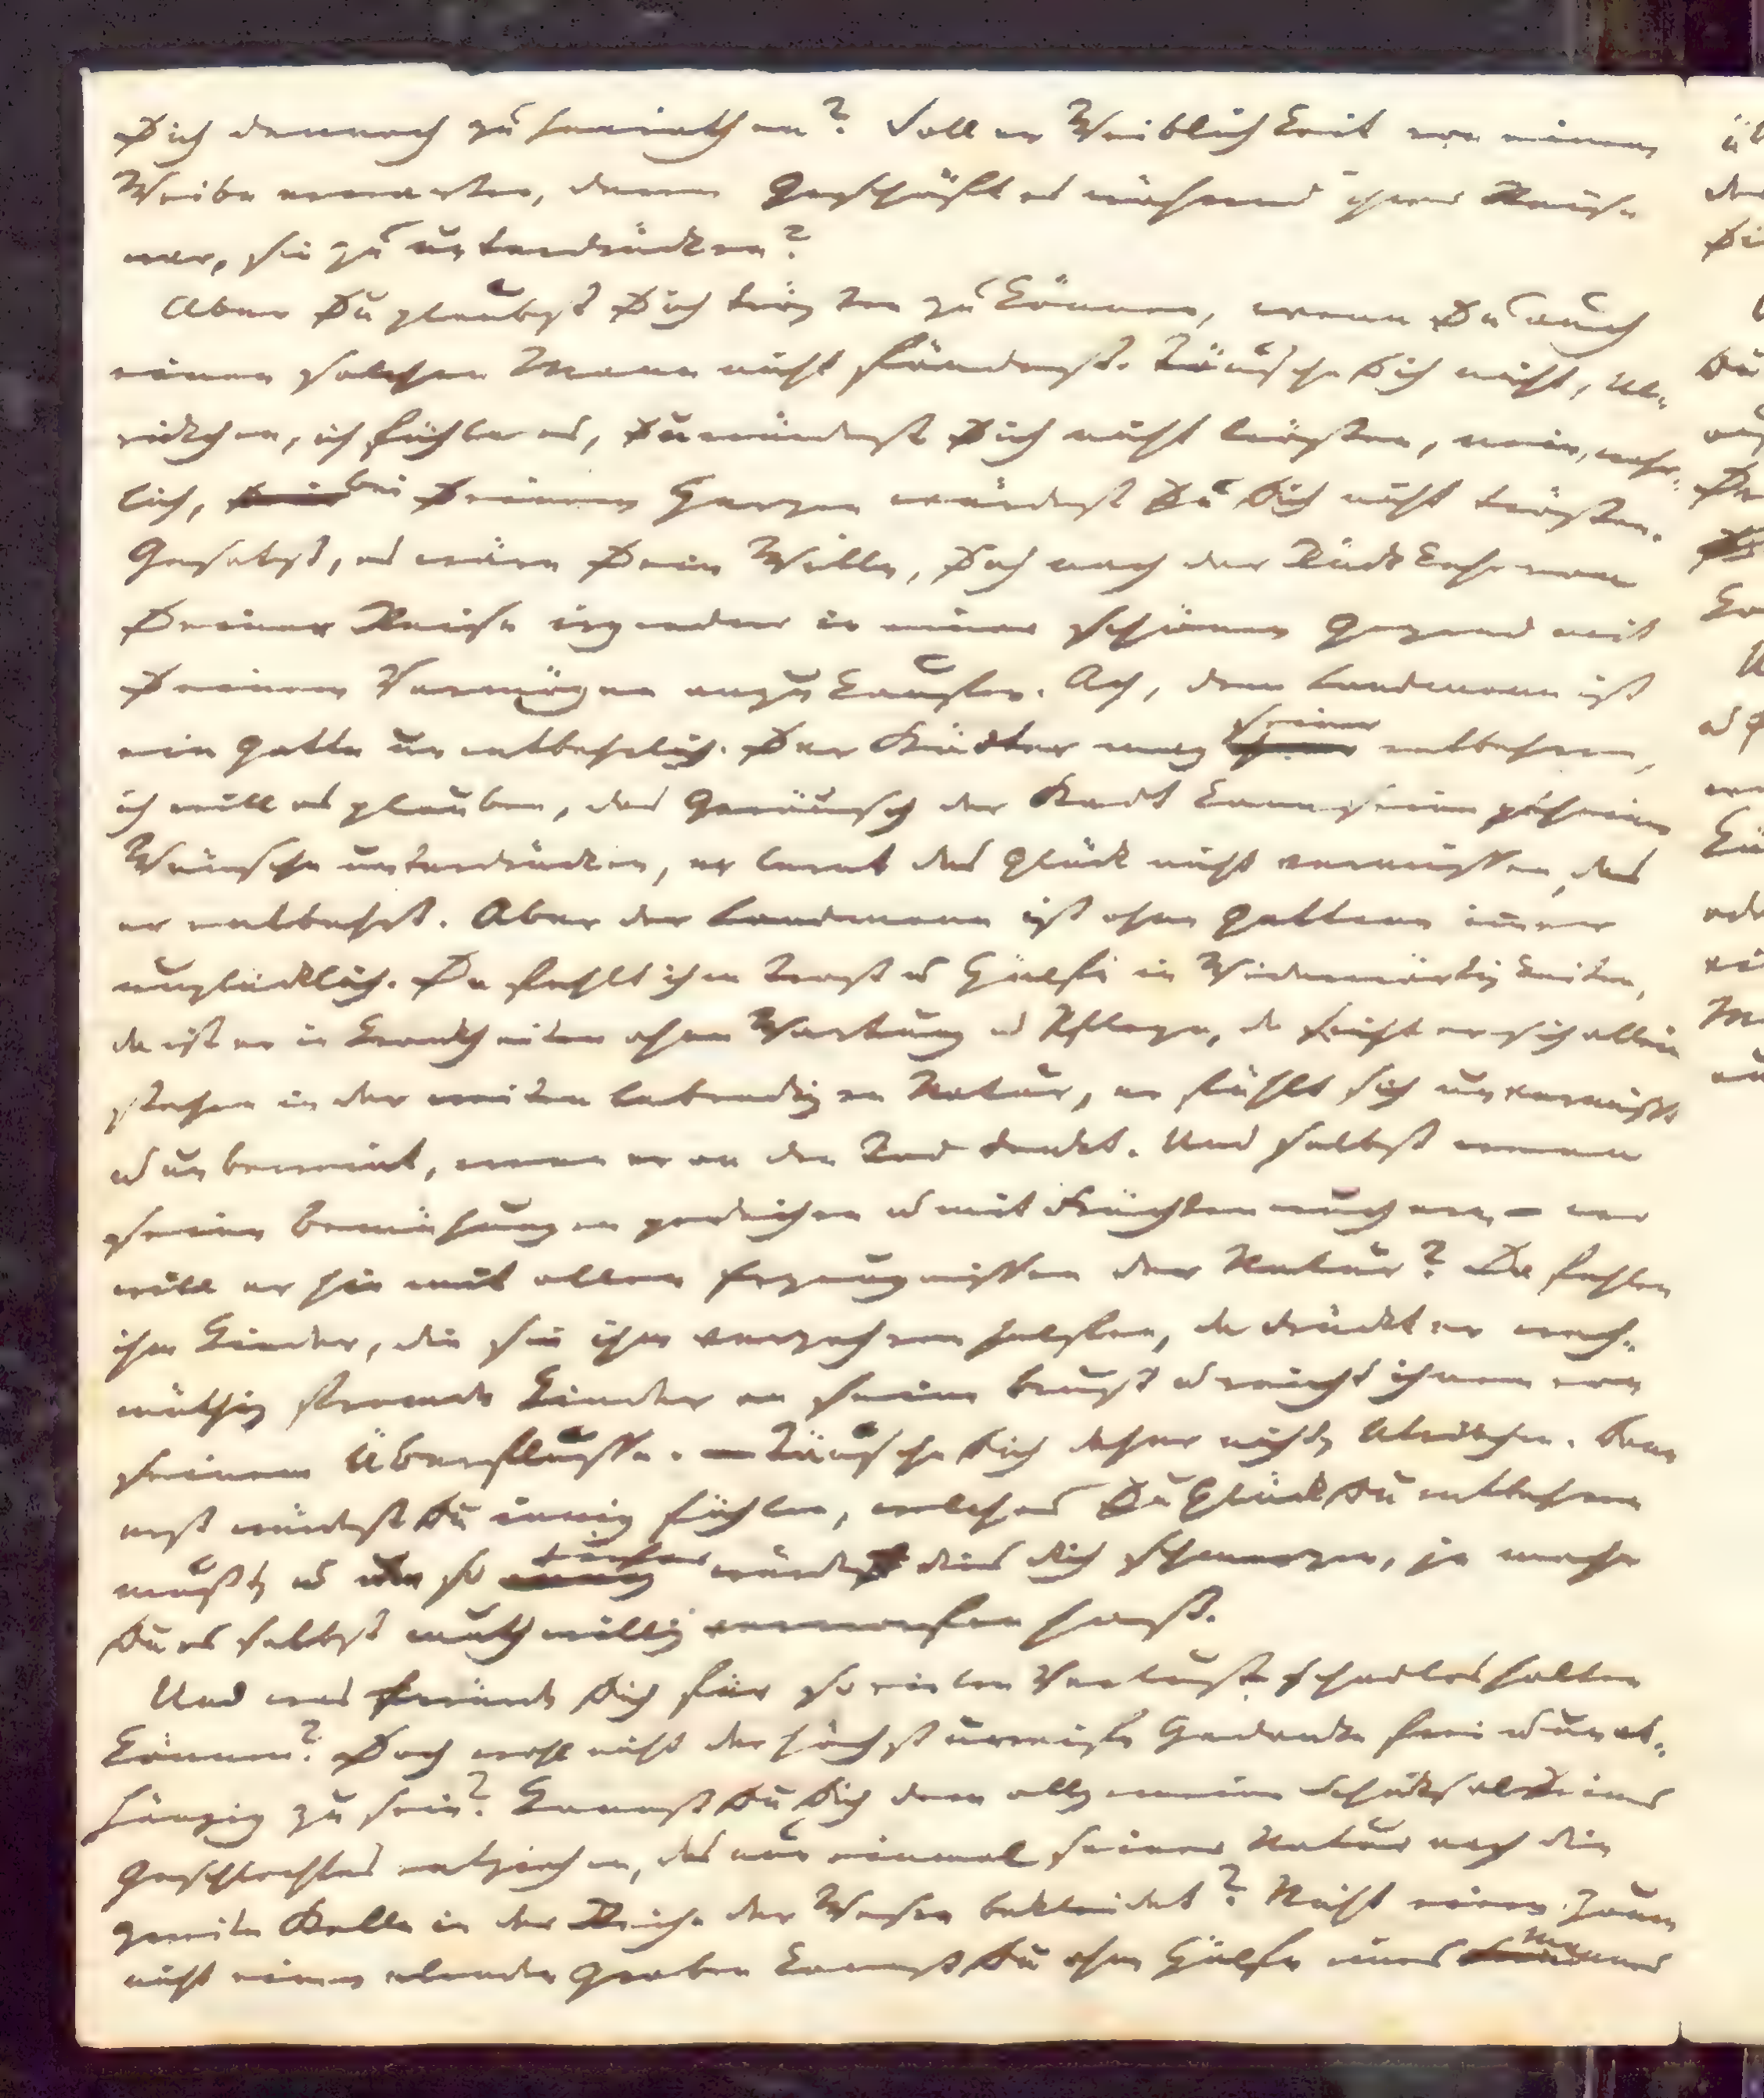 Dich dennoch zu heirathen? Soll er Weiblichkeit von einem
Weibe erwarten, deren Geschäft es während ihrer Reise
war, sie zu unterdrücken?
Aber Du glaubst Dich trösten zu können, wenn Du auch
einen solchen Mann nicht fändest. Täusche Dich nicht, Ul-
rickchen, ich fühle es, Du würdest Dich nicht trösten, nein, wahr-
lich, bei Deinem Herzen würdest Du Dich nicht trösten.
Gesetzt, es wäre Dein Wille, Dich nach der Rückkehr von
Deiner Reise irgendwo in einer schönen Gegend mit
Deinem Vermögen anzukaufen. Ach, dem Landmann ist
ein Gatte unentbehrlich. Der Städter mag seiner entbehren,
ich will es glauben, das Geräusch der Stadt kann seine geheimen
Wünsche unterdrücken, er lernt das Glück nicht vermissen, das
er entbehrt. Aber der Landmann ist ohne Gattenn immer
unglücklich. Da fehlt ihm Trost u Hülfe in Widerwärtigkeiten,
da ist er in Krankheiten ohne Wartung u Pflege, da sieht er sich allein
stehen in der weiten lebendigen Natur, er fühlt sich unvermißt
u unbeweint, wenn er an den Tod denkt. Und selbst wenn
seine Bemühungen gedeihen u mit Früchten wuchern, – wo
will er hin mit allen Erzeugnissen der Natur? Da fehlen
ihm Kinder, die sie ihm verzehren helfen, da drückt er weh-
müthig fremde Kinder an seine Brust u reicht ihnen von
seinem Überflusse. – Täusche Dich daher nicht, Ulrickchen. Dann
erst würdest Du innig fühlen, welches Glück Du entbehren
mußt, u um so tiefer würde dies Dich schmerzen, je mehr
Du es selbst muthwillig verworfen hast.
Und was würde Dich für so vielen Verlust schadlos halten
können? Doch wohl nicht der höchst unreife Gedanke frei u unab-
hängig zu sein? Kannst Du Dich dem allgemeinen Schicksal Deines
Geschlechtes entziehen, das nun einmal seiner Natur nach die
zweite Stelle in der Reihe der Wesen bekleidet? Nicht einen Zaun,
nicht einen elenden Graben kannst Du ohne Hülfe eines Mannes